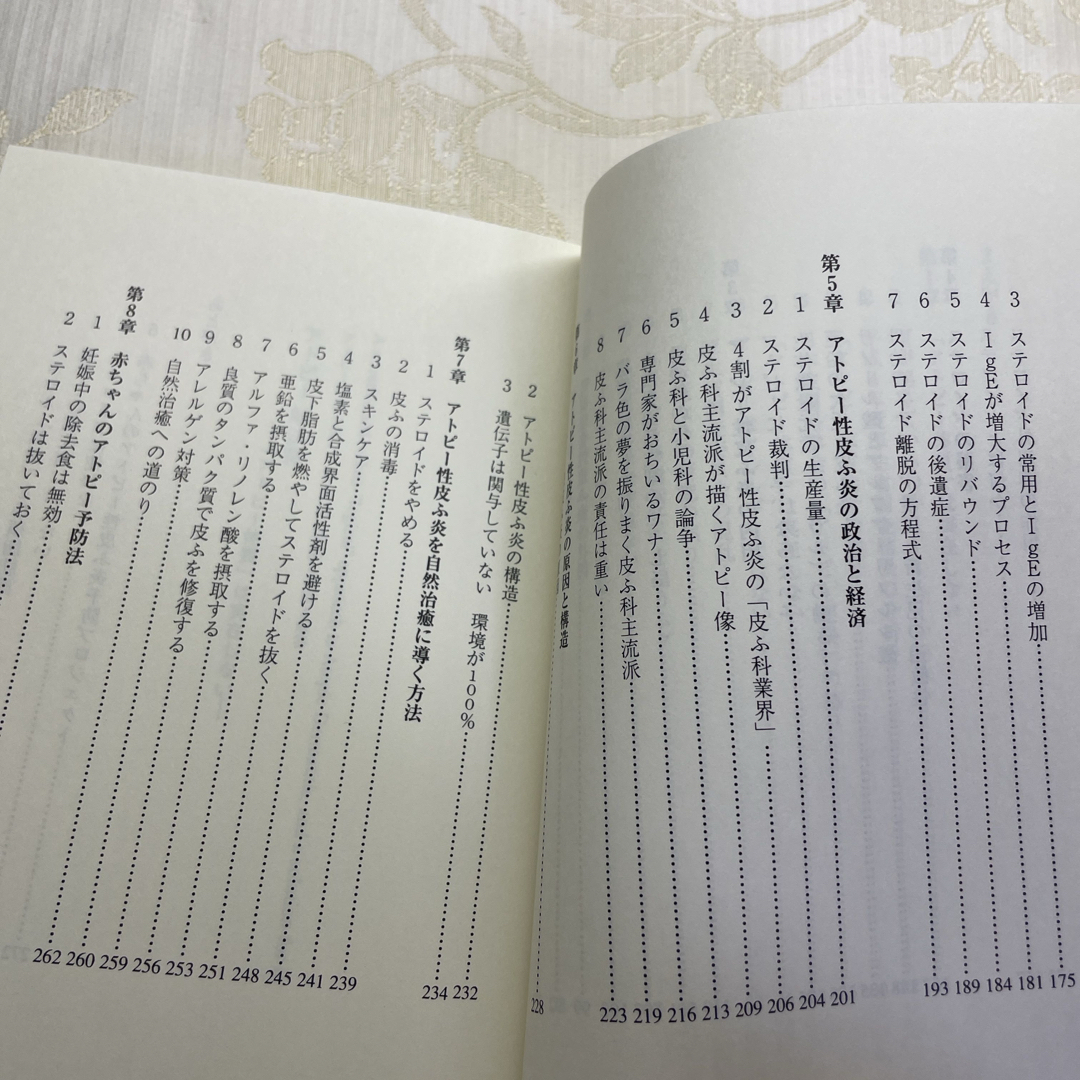 3 ステロイドの常用とIgEの増加……175
4 IgEが増大するプロセス……181
5 ステロイドのリバウンド……184
6 ステロイドの後遺症……189
7 ステロイド離脱の方程式……193
第5章 アトピー性皮ふ炎の政治と経済
1 ステロイドの生産量……201
2 ステロイド裁判……204
3 4割がアトピー性皮ふ炎の「皮ふ科業界」……206
4 皮ふ科主流派が描くアトピー像……209
5 皮ふ科と小児科の論争……213
6 専門家がおちいるワナ……216
7 バラ色の夢を振りまく皮ふ科主流派……219
8 皮ふ科主流派の責任は重い……223
アトピー性皮ふ炎の原因と構造
……228
2 アトピー性皮ふ炎の構造……232
3 遺伝子は関与していない 環境が100%……234
第7章 アトピー性皮ふ炎を自然治癒に導く方法
1 ステロイドをやめる……239
2 皮ふの消毒……241
3 スキンケア……245
4 塩素と合成界面活性剤を避ける……248
5 皮下脂肪を燃やしてステロイドを抜く……251
6 亜鉛を摂取する……253
7 アルファ・リノレン酸を摂取する……256
8 良質のタンパク質で皮ふを修復する……259
9 アレルゲン対策……260
10 自然治癒への道のり……262
第8章 赤ちゃんのアトピー予防法
1 妊娠中の除去食は無効……
2 ステロイドは抜いておく……